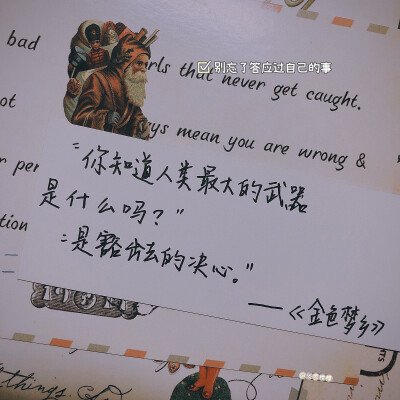 bad
rls that never get caught.
☑别忘了答应过自己的事
ot
ys mean you are wrong &
r per
"你知道人类最大的武器
是什么吗？"
"是豁出去的决心。"
tion
——《金色梦乡》
things.